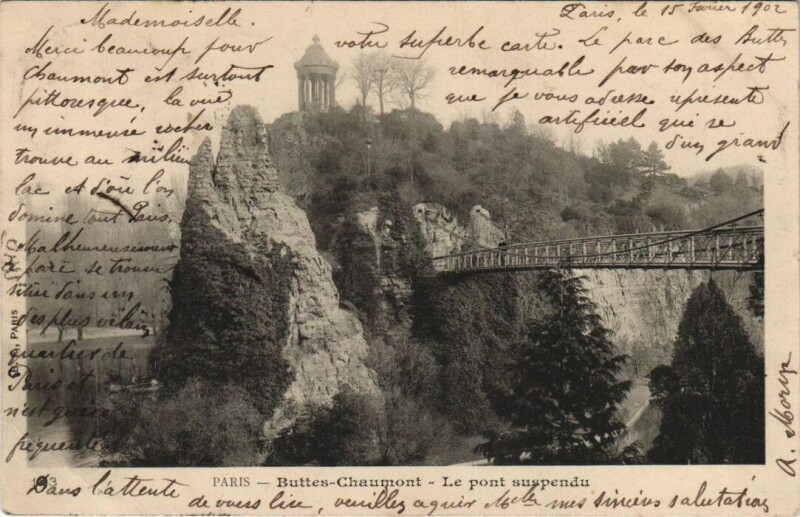 Paris, le 15 Février 1902
Mademoiselle.
Merci beaucoup pour votre superbe carte. Le parc des Buttes
Chaumont est surtout remarquable par son aspect
pittoresque, la vue que je vous adresse représente
un immense rocher artificiel qui se
trouve au milieu d'un grand
lac et d'où l'on
domine tout Paris.
Malheureusement
parc se trouve
situé dans un
des plus vilains
quartier de
Paris et
n'est guère
fréquenté
PARIS
A. Morin
PARIS — Buttes-Chaumont - Le pont suspendu
Dans l'attente de vous lire, veuillez agréer Melle mes sincères salutations